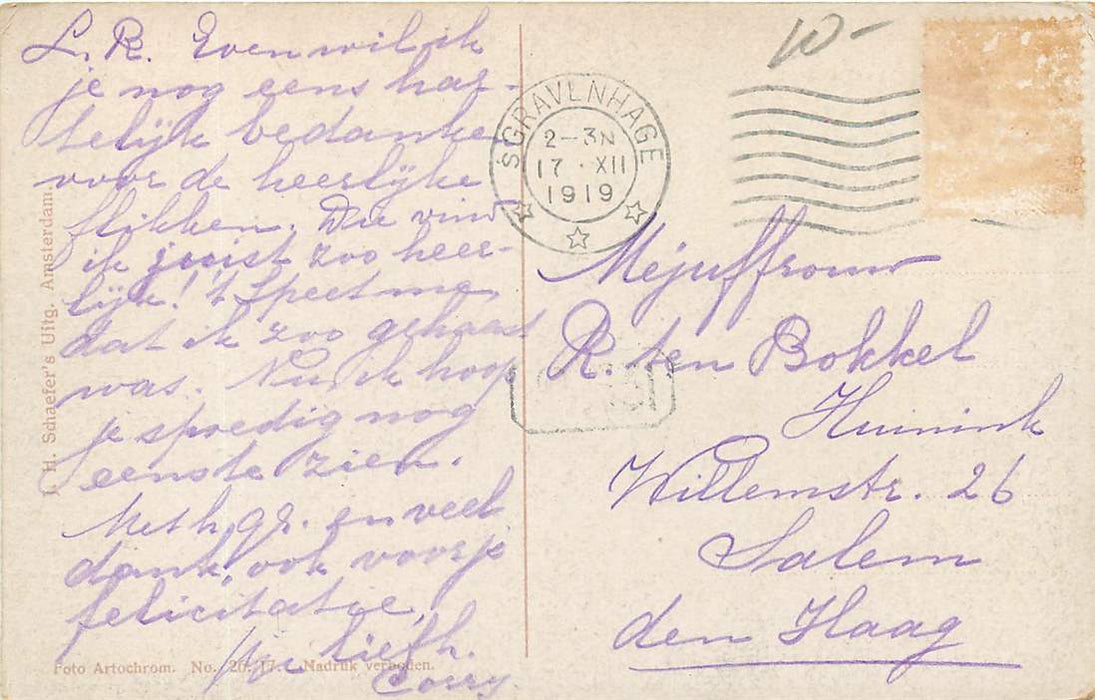 L. R. Even wil ik
je nog eens har-
telijk bedanken
voor de heerlijke
flikken. Die vind
ik juist zoo heer-
lijk! 't Speet me,
dat ik zoo gehaast
was. Nu ik hoop
je spoedig nog
eens te zien.
Met h. gr. en veel
dank, ook voor je
felicitatie,
je liefh.
Corry
J. H. Schaefer's Uitg. Amsterdam.
Foto Artochrom. No. 20. 17. Nadruk verboden.
10-
'SGRAVENHAGE
2-3N
17 · XII
1919
Mejuffrouw
R. ten Bokkel
Huinink
Willemstr. 26
Salem
den Haag